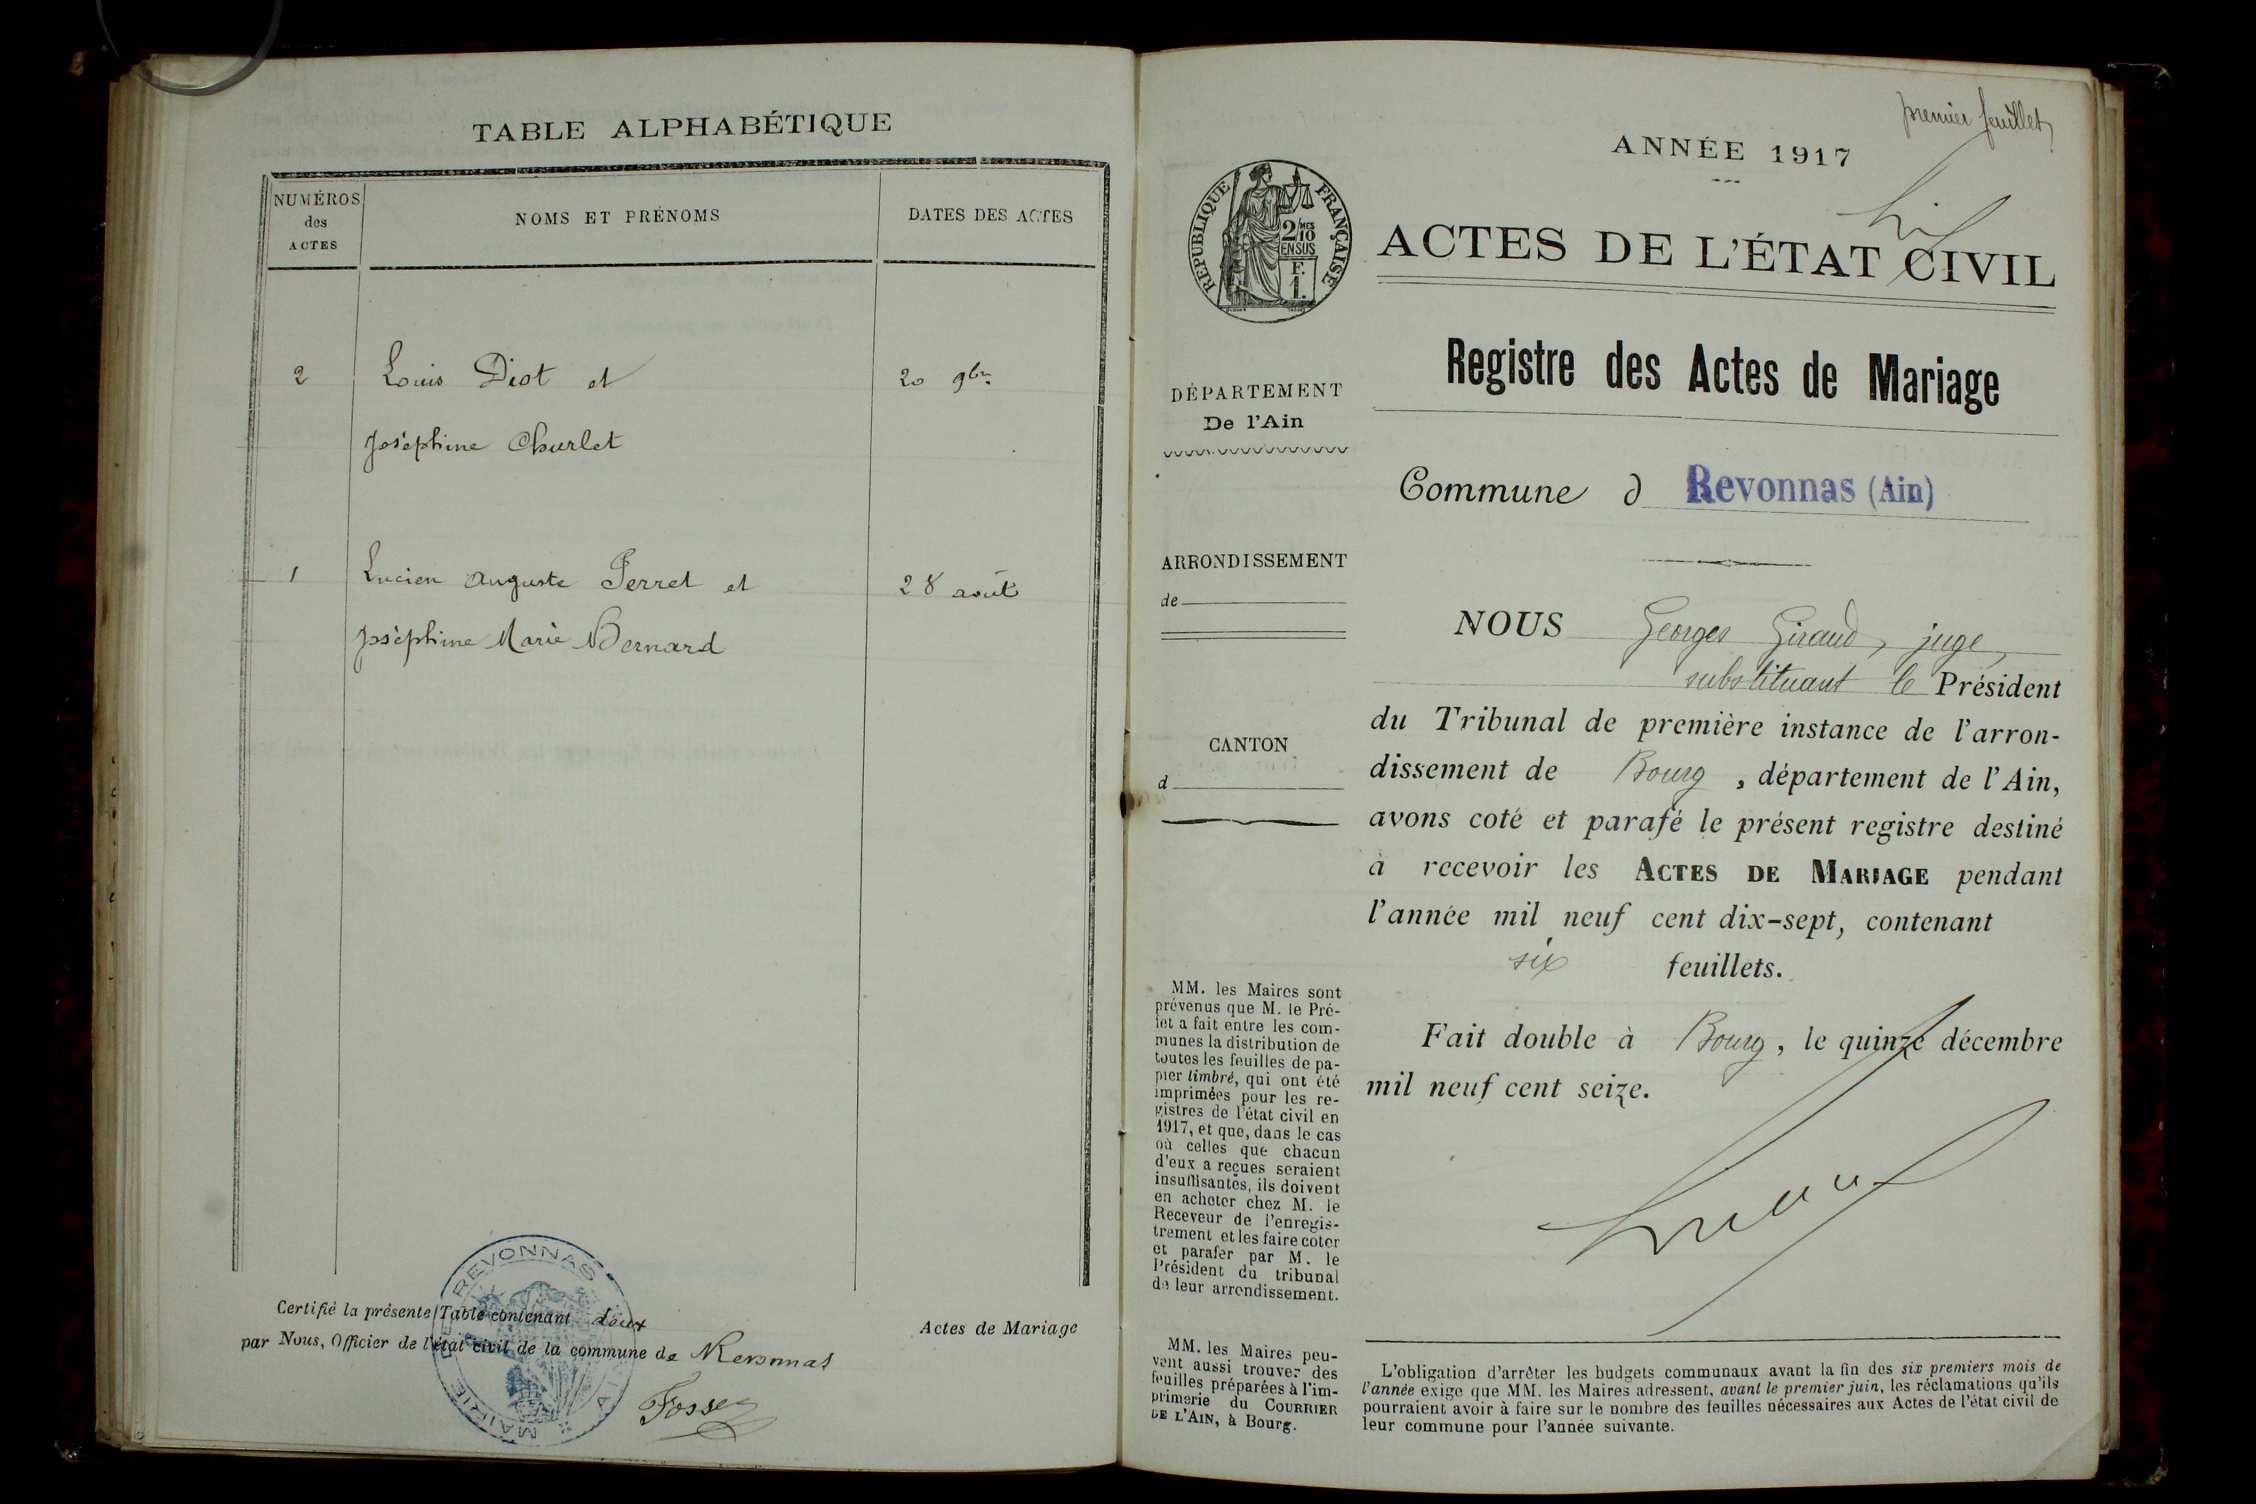 TABLE ALPHABÉTIQUE
NUMÉROS
des
ACTES
NOMS ET PRÉNOMS
DATES DES ACTES
2 Louis Diot et 20 9bre
Joséphine Churlet
1 Lucien Auguste Perret et 28 août
Joséphine Marie Bernard
Certifié la présente Table contenant deux Actes de Mariage
par Nous, Officier de l'état civil de la commune de Revonnas
MAIRIE DE REVONNAS AIN
premier feuillet
ANNÉE 1917
RÉPUBLIQUE FRANÇAISE
2/10 MES
EN SUS
F.
1.
ACTES DE L'ÉTAT CIVIL
Registre des Actes de Mariage
DÉPARTEMENT
De l'Ain
Commune d Revonnas (Ain)
ARRONDISSEMENT
de
CANTON
d
NOUS Georges Giraud, juge,
substituant le Président
du Tribunal de première instance de l'arron-
dissement de Bourg, département de l'Ain,
avons coté et parafé le présent registre destiné
à recevoir les ACTES DE MARIAGE pendant
l'année mil neuf cent dix-sept, contenant
six feuillets.
Fait double à Bourg, le quinze décembre
mil neuf cent seize.
MM. les Maires sont
prévenus que M. le Pré-
fet a fait entre les com-
munes la distribution de
toutes les feuilles de pa-
pier timbré, qui ont été
imprimées pour les re-
gistres de l'état civil en
1917, et que, dans le cas
où celles que chacun
d'eux a reçues seraient
insuffisantes, ils doivent
en acheter chez M. le
Receveur de l'enregis-
trement et les faire coter
et parafer par M. le
Président du tribunal
de leur arrondissement.
MM. les Maires peu-
vent aussi trouver des
feuilles préparées à l'im-
primerie du COURRIER
DE L'AIN, à Bourg.
L'obligation d'arrêter les budgets communaux avant la fin des six premiers mois de
l'année exige que MM. les Maires adressent, avant le premier juin, les réclamations qu'ils
pourraient avoir à faire sur le nombre des feuilles nécessaires aux Actes de l'état civil de
leur commune pour l'année suivante.